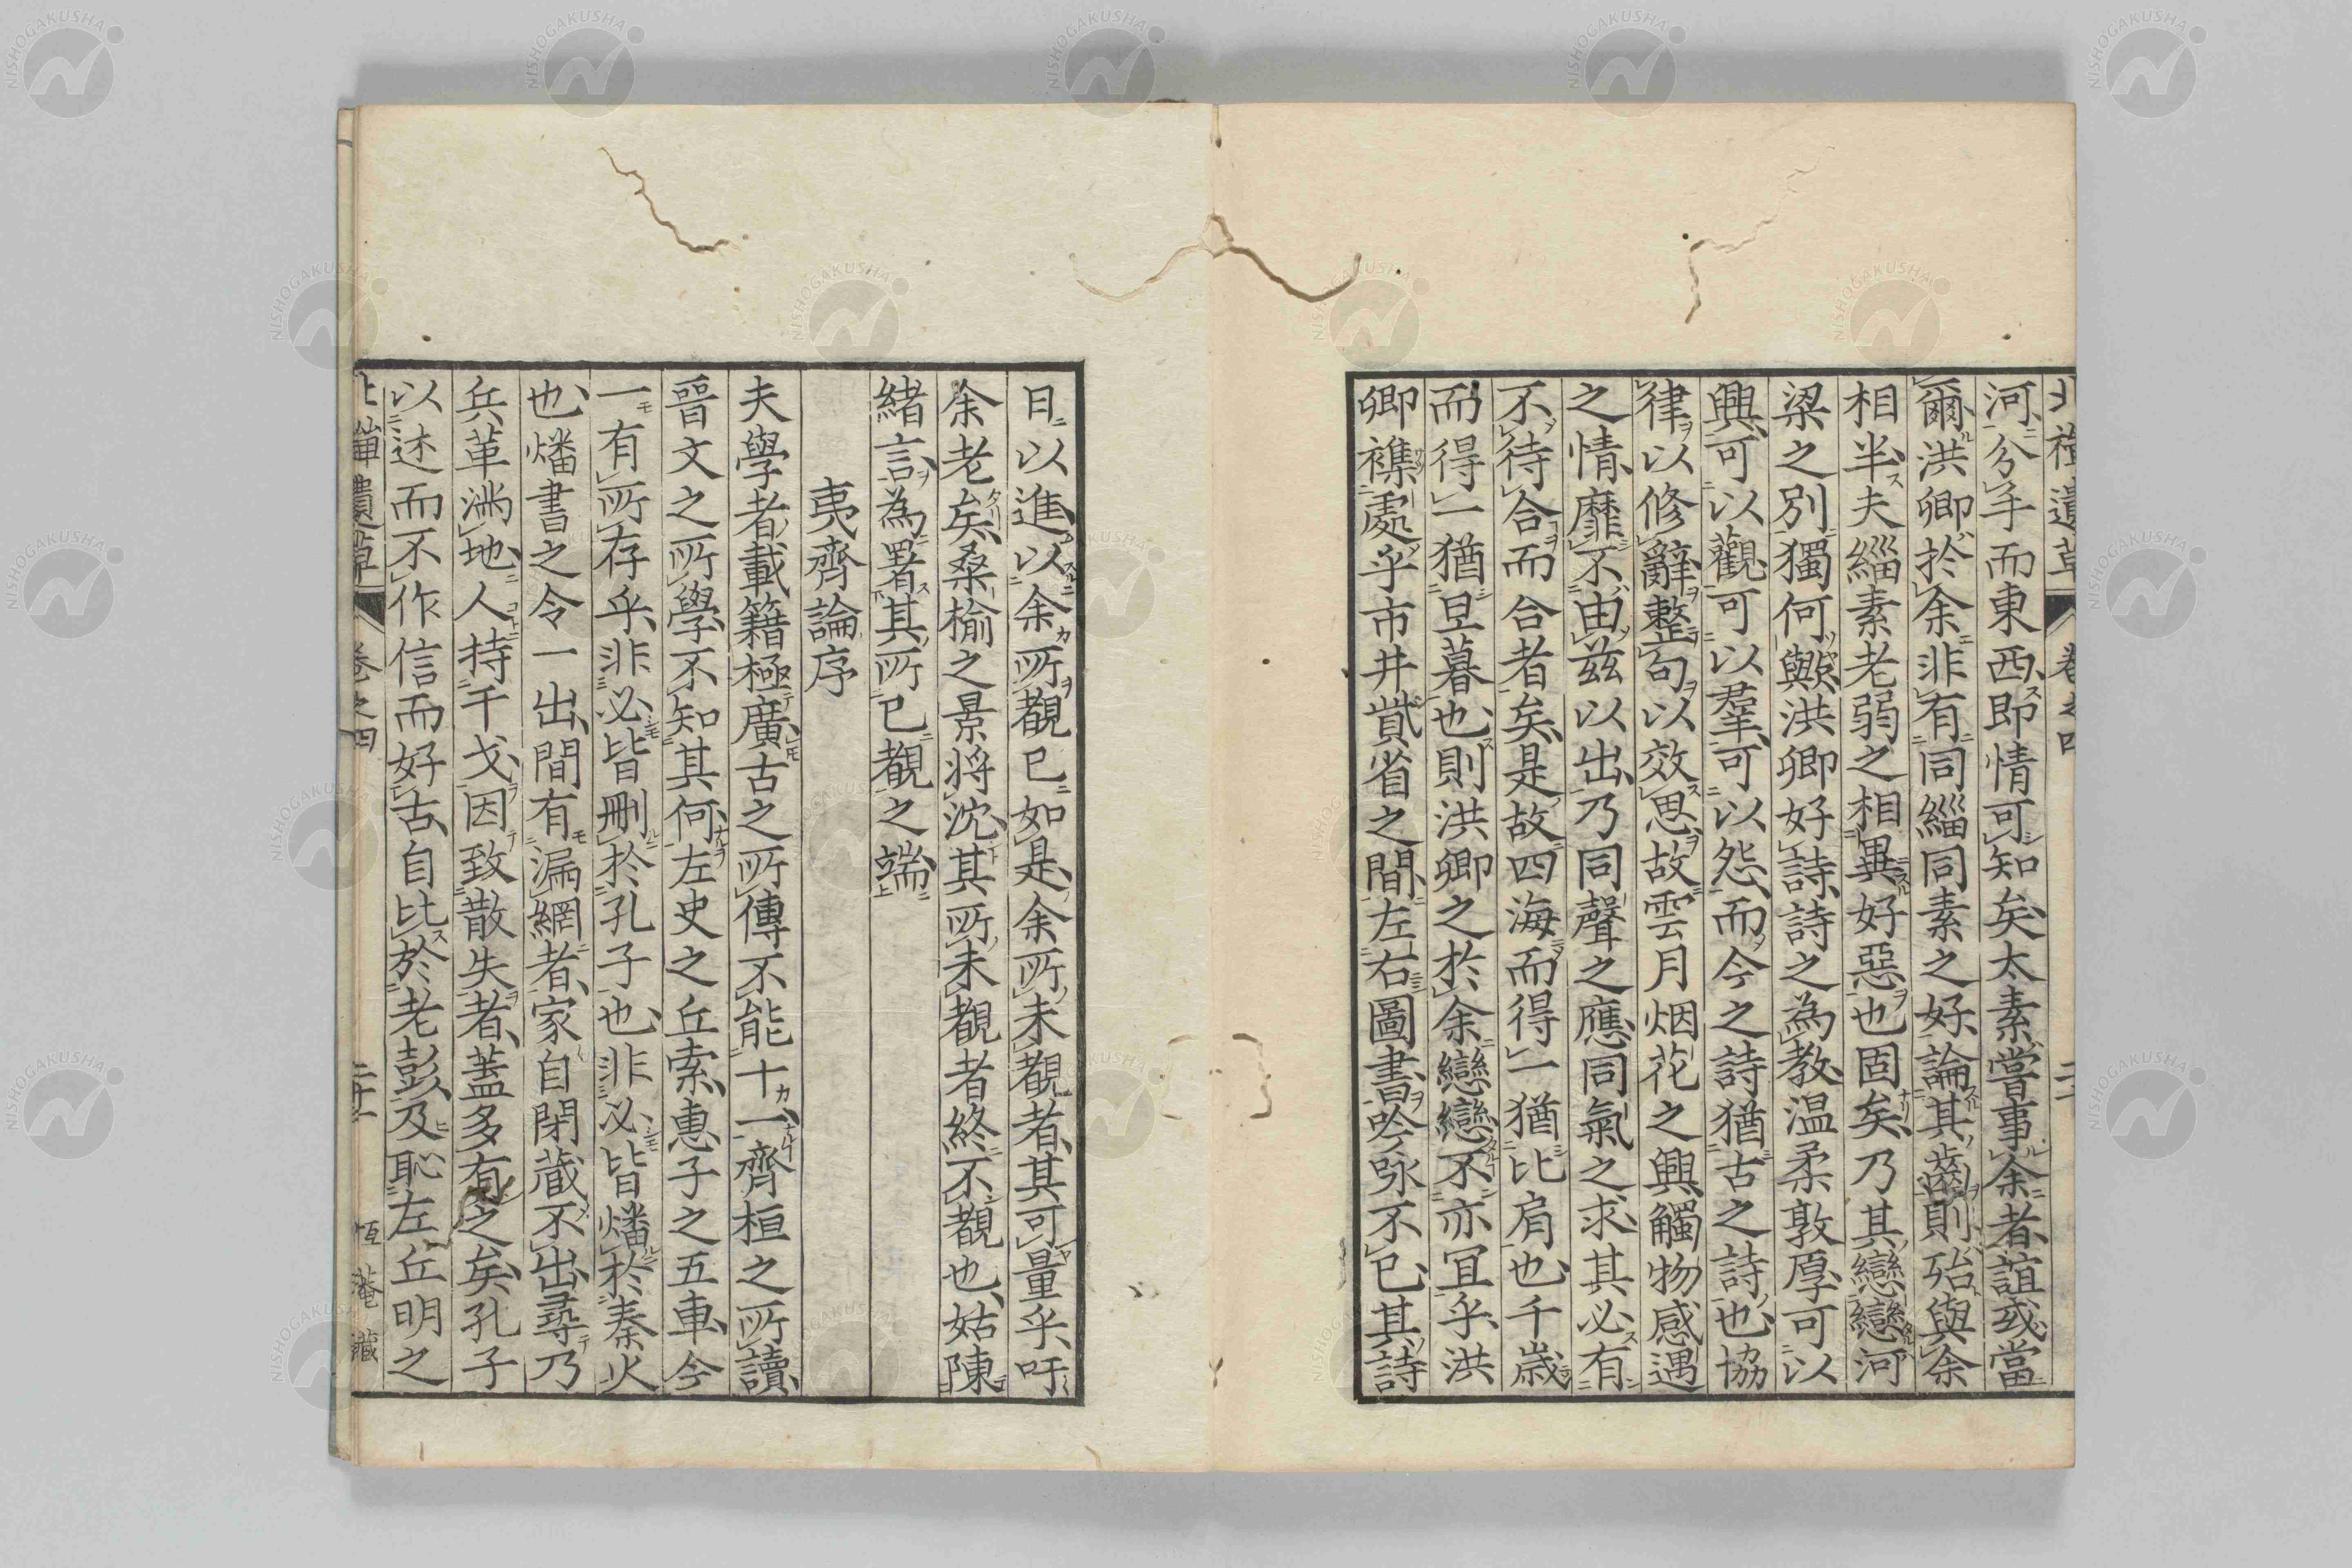 河分手而東西即情可知矣太素嘗事余者誼或當
爾洪卿於余非有同緇同素之好論其齒則殆與余
相半夫緇素老弱之相異好惡也固矣乃其戀戀河
梁之別獨何歟洪卿好詩詩之為教溫柔敦厚可以
興可以觀可以羣可以怨而今之詩猶古之詩也協
律以修辭整句以效思故雲月烟花之興觸物感遇
之情靡不由茲以出乃同聲之應同氣之求其必有
不待合而合者矣是故四海而得一猶比肩也千歲
而得一猶旦暮也則洪卿之於余戀戀不亦宜乎洪
卿襍處乎市井貲省之間左右圖書吟咏不已其詩
日以進以余所覩已如是余所未覩者其可量乎吁
余老矣桑榆之景將沈其所未覩者終不覩也姑陳
緒言為署其所已覩之端
夷齊論序
夫學者載籍極廣古之所傳不能十一齊桓之所讀
晉文之所學不知其何左史之丘索惠子之五車今
一有所存乎非必皆刪於孔子也非必皆燔於秦火
也燔書之令一出間有漏網者家自閉蔵不出尋乃
兵革滿地人持干戈因致散失者蓋多有之矣孔子
以述而不作信而好古自比於老彭及恥左丘明之
卷之四
恆菴藏
NISHOGAKUSHA